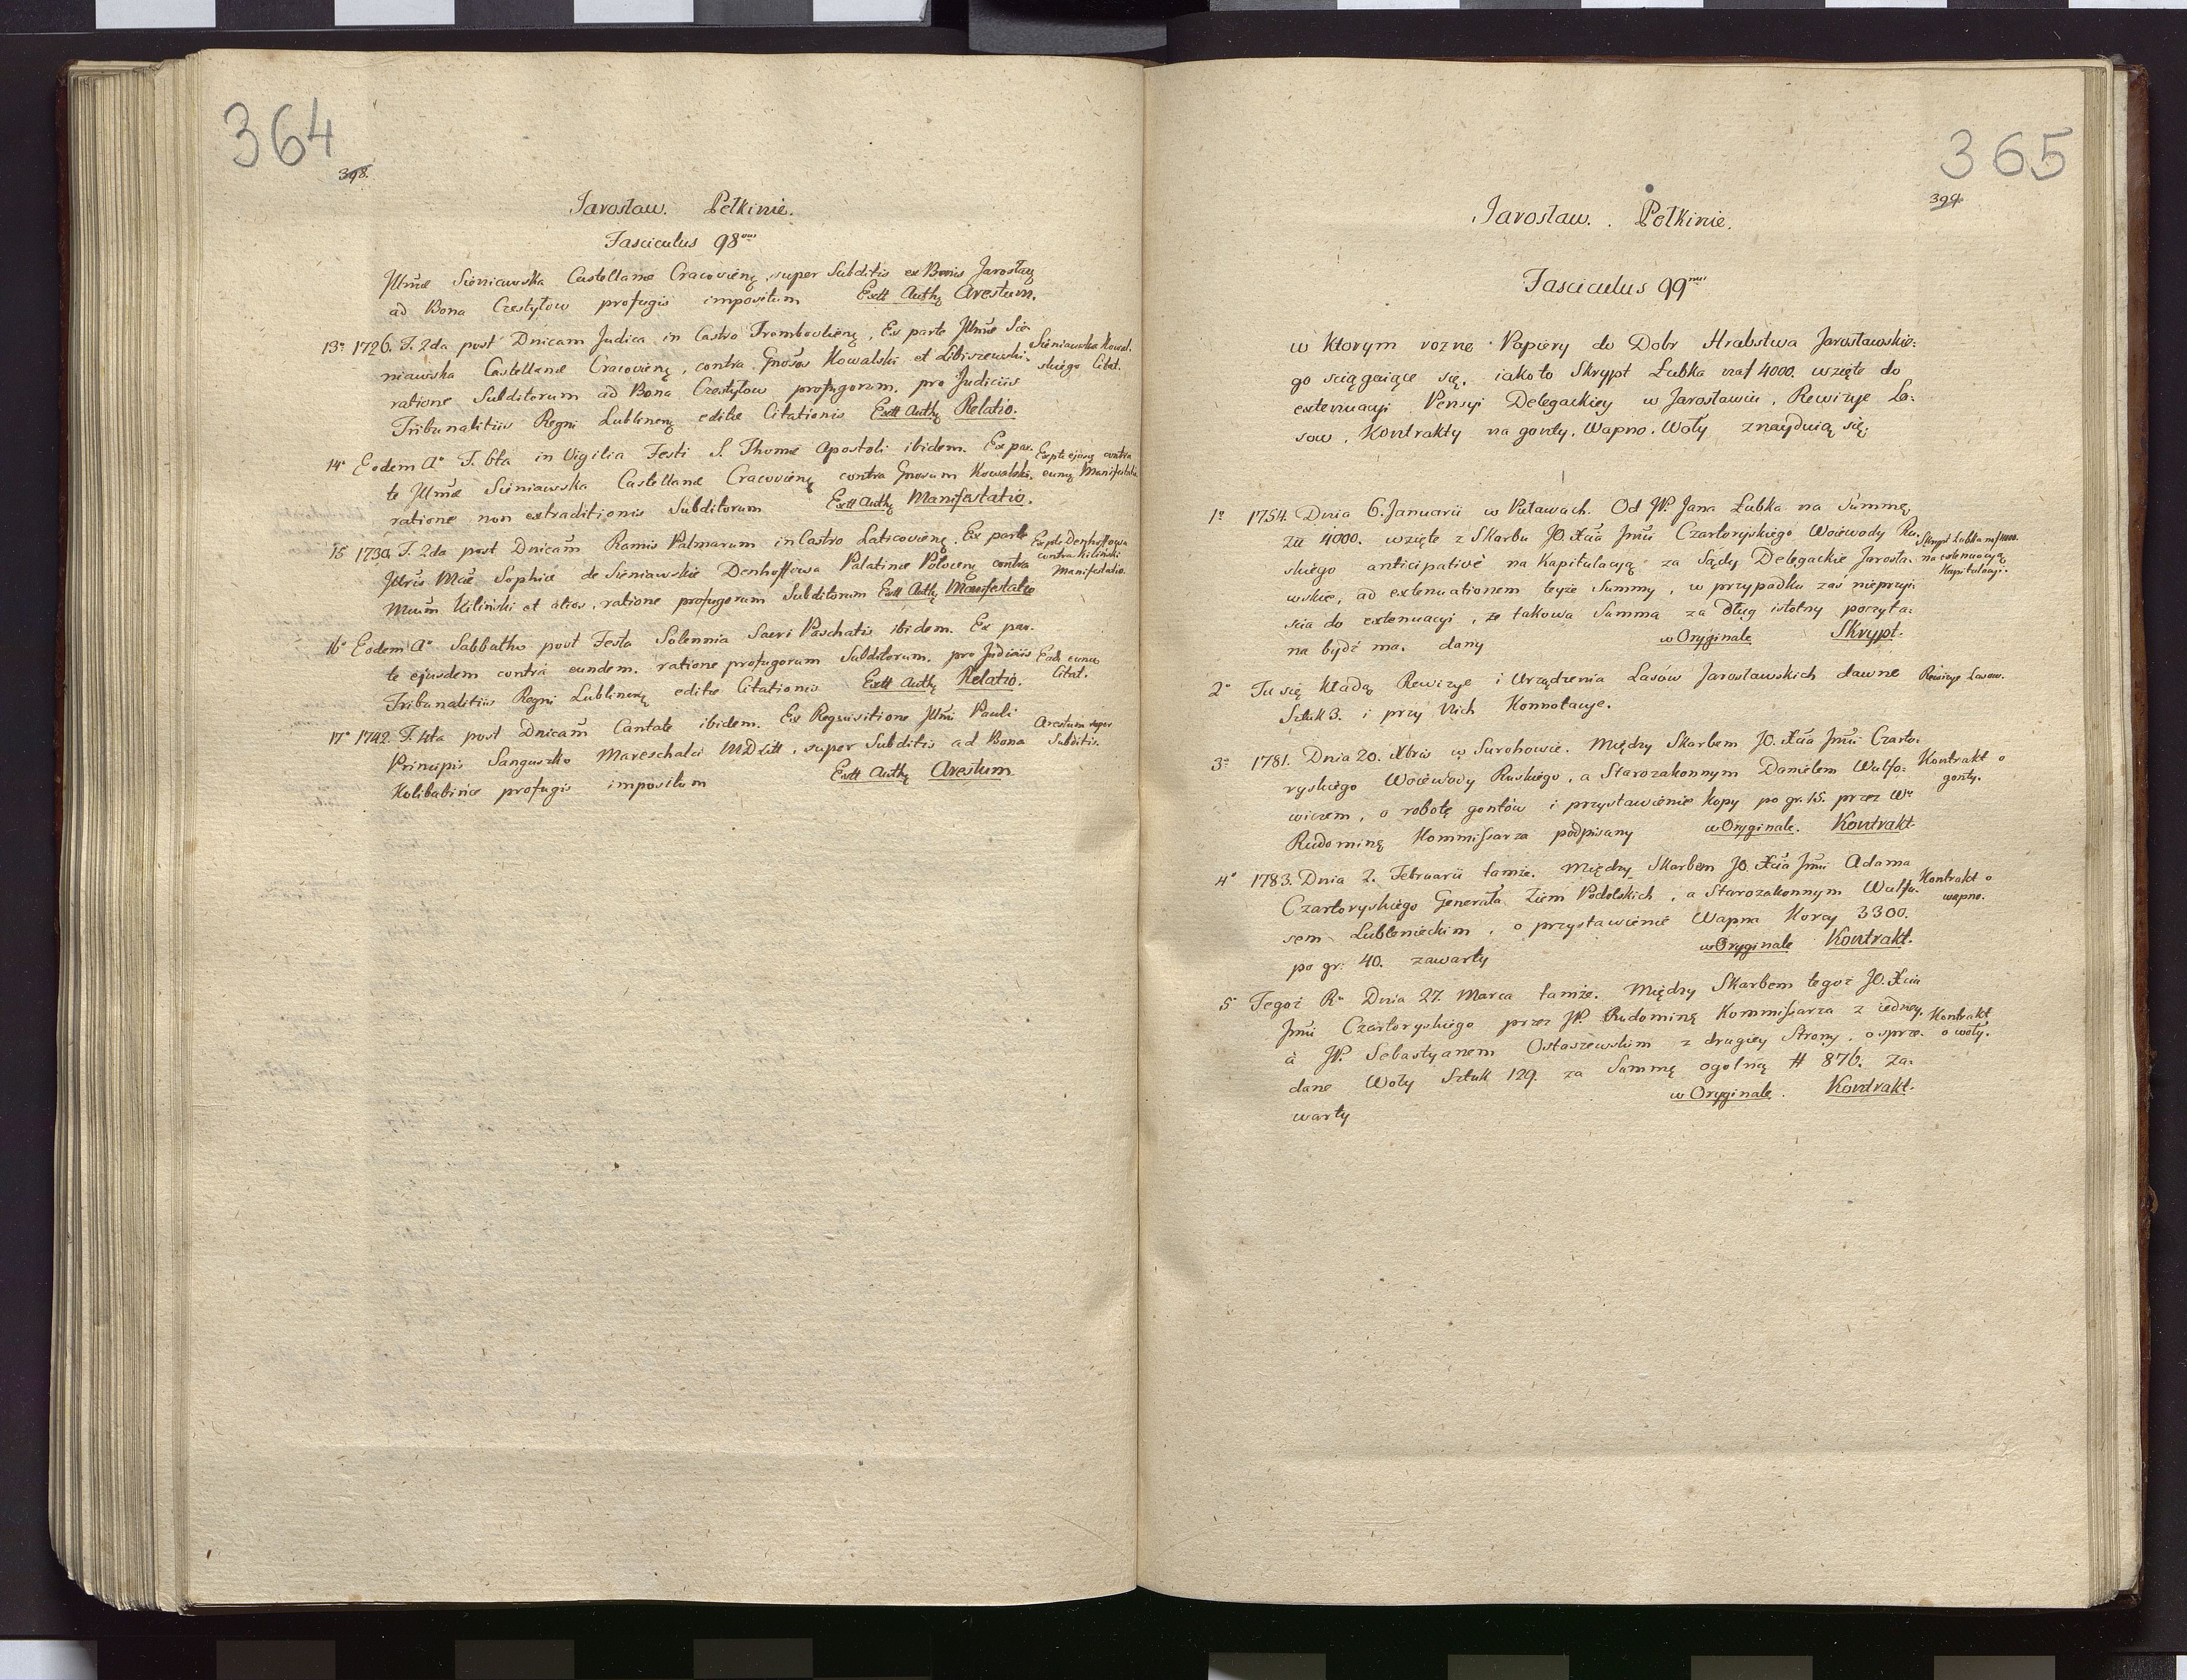 364
398.
Jarosław. Pełkinie.
Fasciculus 98mus
Jllmæ Sieniawska Castellanæ Cracovienę, super Subditis ex Bonis Jarosłaę
ad Bona Czestyłow profugis impositum Extt Authę Arestum.
13o 1726. F. 2da post Dnicam Judica in Castro Trembovlienę, Ex parte Jllmæ Sie-
niawska Castellanæ Cracovienę, contra Gnosos Kowalski et Libiszewski,
ratione Subditorum ad Bona Czestyłow profugorum, pro Judiciis
Tribunalitiis Regni Lublinenę editæ Citationis Extt Authę Relatio.
Sieniawska Kowal-
skiego Citat.
14o Eodem Ao F. 6ta in Vigilia Festi S. Thomæ Apostoli ibidem. Ex par-
te Jllmæ Sieniawska Castellanæ Cracovienę contra Gnosum Kowalski,
ratione non extraditionis Subditorum Extt Authę Manifestatio.
Ex pte ejusę contra
eumę Manifestatio
15 1730. F. 2da post Dnicam Ramis Palmarum in Castro Laticovienę. Ex parte
Jllris Mcæ Sophiæ de Sieniawskie Denhoffowa Palatinæ Połocenę contra
Mcum Kiliński et alios, ratione profugorum Subditorum Extt Authę Manifestatio
Ex pte Denhoffowa
contra Kiliński
Manifestatio.
16o Eodem Ao Sabbatho post Festa Solennia Sacri Paschatis ibidem. Ex par-
te ejusdem contra eundem, ratione profugorum Subditorum, pro Judiciis
Tribunalitiis Regni Lublinenę editæ Citationis Extt Authę Relatio.
Ead. eunę
Citat.
17o 1742. F. 4ta post Dnicam Cantate ibidem. Ex Requisitione Jllmi Pauli
Principis Sanguszko Mareschalci MDLitt, super Subditis ad Bona
Kolibabińce profugis impositum Extt Authę Arestum
Arestum super
Subditis.
365
399
Jarosław. . Pełkinie.
Fasciculus 99mus
w Ktorym rozne Papiery do Dobr Hrabstwa Jarosławskie-
go sciągaiące się, iakoto Skrypt Łubka na f 4000. wzięte do
extenuacyi Pensyi Delegackiey w Jarosławiu, Rewizye La-
sow, Kontrakty na gonty, Wapno, Woły znayduią się.
1o 1754. Dnia 6. Januarii w Puławach. Od JP. Jana Łubka na Summę
Złł 4000. wzięte z Skarbu JO. Xcia Jmci Czartoryskiego Woiewody Ru-
skiego anticipativè na Kapitulacyą za Sądy Delegackie Jarosła-
wskie, ad extenuationem teyże Summy, w przypadku zaś nieprzyi-
scia do extenuacyi, że takowa Summa za dług istotny poczyta-
na bydź ma, dany w Oryginale Skrypt.
Skrypt Łubka na f 4000.
na extenuacyą
Kapitulacyi.
2o Tu się kładą Rewizye i Urządzenia Lasów Jarosławskich dawne
Sztuk 3. i przy Nich Konnotacye.
Rewizye Lasow.
3o 1781. Dnia 20. Xbris w Surohowie. Między Skarbem JO. Xcia Jmci Czarto-
ryskiego Woiewody Ruskiego, a Starozakonnym Danielem Wulfo-
wiczem, o robotę gontów i przystawienie kopy po gr. 15. przez Wo
Rudominę Kommissarza podpisany w Oryginale. Kontrakt.
Kontrakt o
gonty.
4o 1783. Dnia 2. Februarii tamże. Między Skarbem JO. Xcia Jmci Adama
Czartoryskiego Generała Ziem Podolskich, a Starozakonnym Wulfo-
sem Lublenieckim, o przystawienie Wapna Korcy 3300.
po gr: 40. zawarty w Oryginale Kontrakt.
Kontrakt o
wapno.
5 Tegoż Ru Dnia 27. Marca tamże. Między Skarbem tegoż JO. Xcia
Jmci Czartoryskiego przez JP. Rudominę Kommissarza z iedney,
à JP. Sebastyanem Ostaszewskim z drugiey Strony, o sprze-
dane Woły Sztuk 129. za Summę ogolną # 876. za-
warty w Oryginale. Kontrakt.
Kontrakt
o woły.